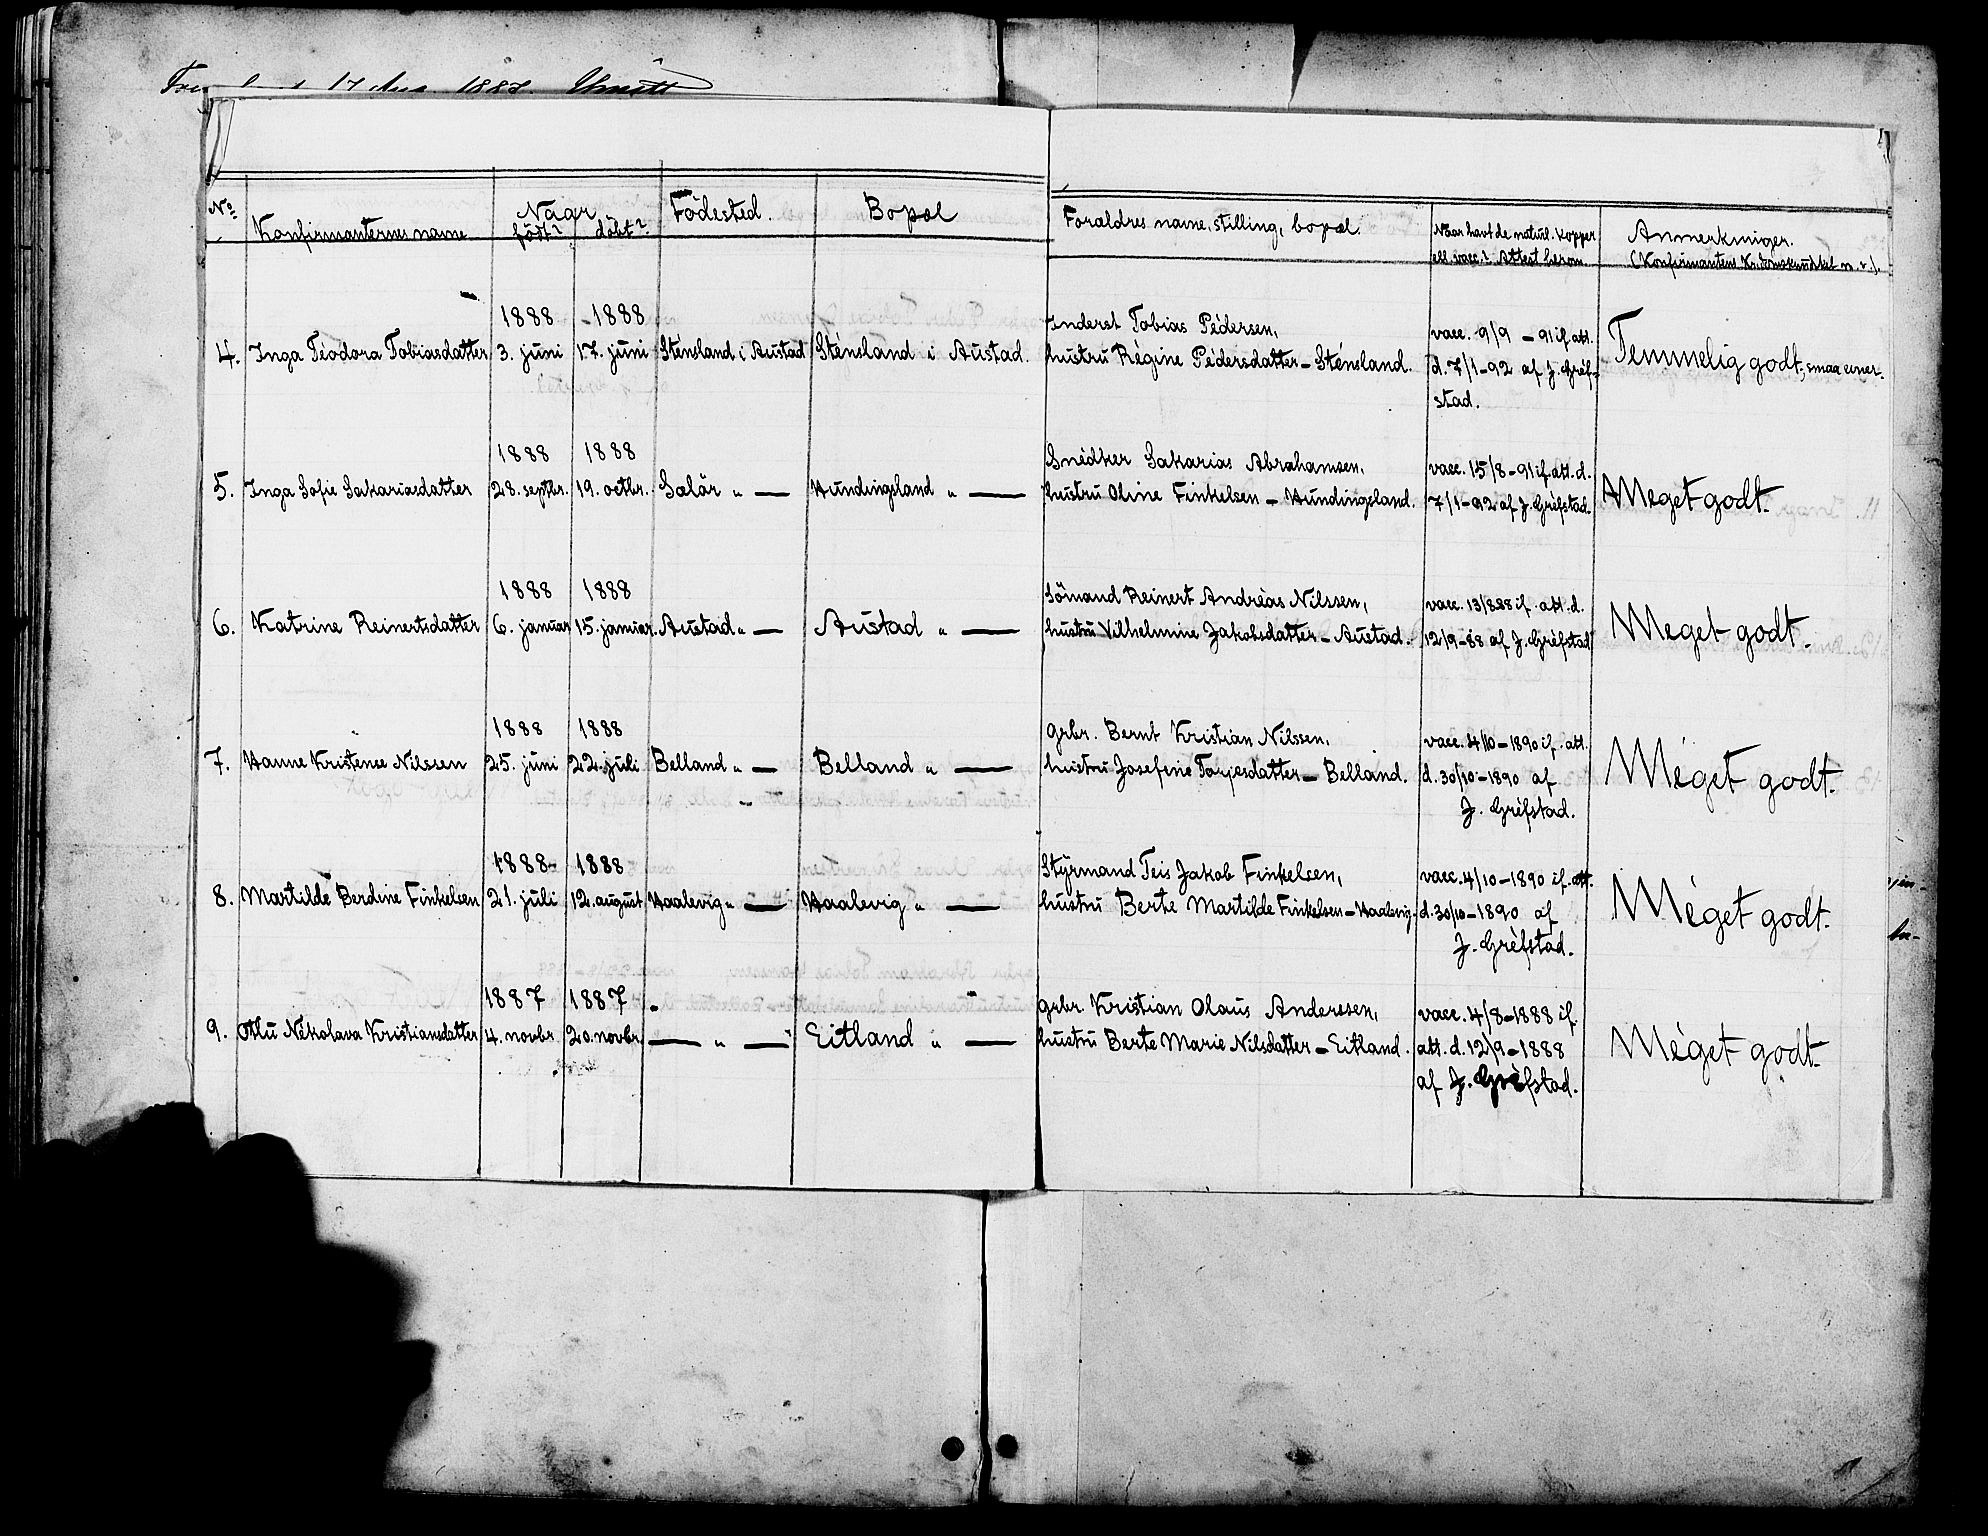 17 Aug. 1887.
No. Konfirmanternes navne Naar födt? döbt? Födested. Bopæl Forældres navne, stilling, bopæl. Naar havt de natürl. kopper ell. vacc.? Attest herom. Anmerkninger. (Konfirmantens Kr.domskundskab m.v.).
1888 1888 Inderst Tobias Pedersen, vacc. 9/9 - 91 if. att.
4. Inga Teodora Tobiasdatter 3. juni 17. juni Stensland i Austad Stensland i Austad. hustru Regine Pedersdatter - Stensland. d. 7/1-92 af J. Gref- Temmelig godt, smaa evner.
stad.
1888 1888 Snedker Sakarias Abrahamsen, vacc. 15/8-91 if. att. d.
5. Inga Sofie Sakariasdatter 28. septbr. 19. octbr. Salär " — Hundingsland " — hustru Oline Finkelsen - Hundingsland. 7/1-92 af J. Grefstad. Meget godt.
1888 1888 Sömand Reinert Andreas Nilssen, vacc. 13/888 if. att. d.
6. Katrine Reinertsdatter 6. januar 15. januar. Austad " — Austad " — hustru Vilhelmine Jakobsdatter - Austad. 12/9-88 af J. Grefstad Meget godt.
1888 1888 Grbr. Bernt Kristian Nilssen, vacc. 4/10-1890 if. att.
7. Hanne Kristense Nilssen 25. juni 22. juli Belland " — Belland " — hustru Josefine Torjesdatter - Belland. d. 30/10-1890 af Meget godt.
J. Grefstad.
1888 1888 Styrmand Teis Jakob Finkelsen, vacc. 4/10-1890 if. att.
8. Martilde Berdine Finkelsen 21. juli 12. august Haalevig " — Haalevig " — hustru Berte Martilde Finkelsen - Haalevig. d. 30/10-1890 af Meget godt.
J. Grefstad.
1887 1887 Grbr Kristian Olaus Anderssen, vacc. 4/8-1888 if.
9. Nikolava Kristiansdatter 4. novbr 20. novbr. — " — Eitland " — hustru Berte Marie Nilsdatter - Eitland. att. d. 12/9-1888 Meget godt.
af J. Grefstad.